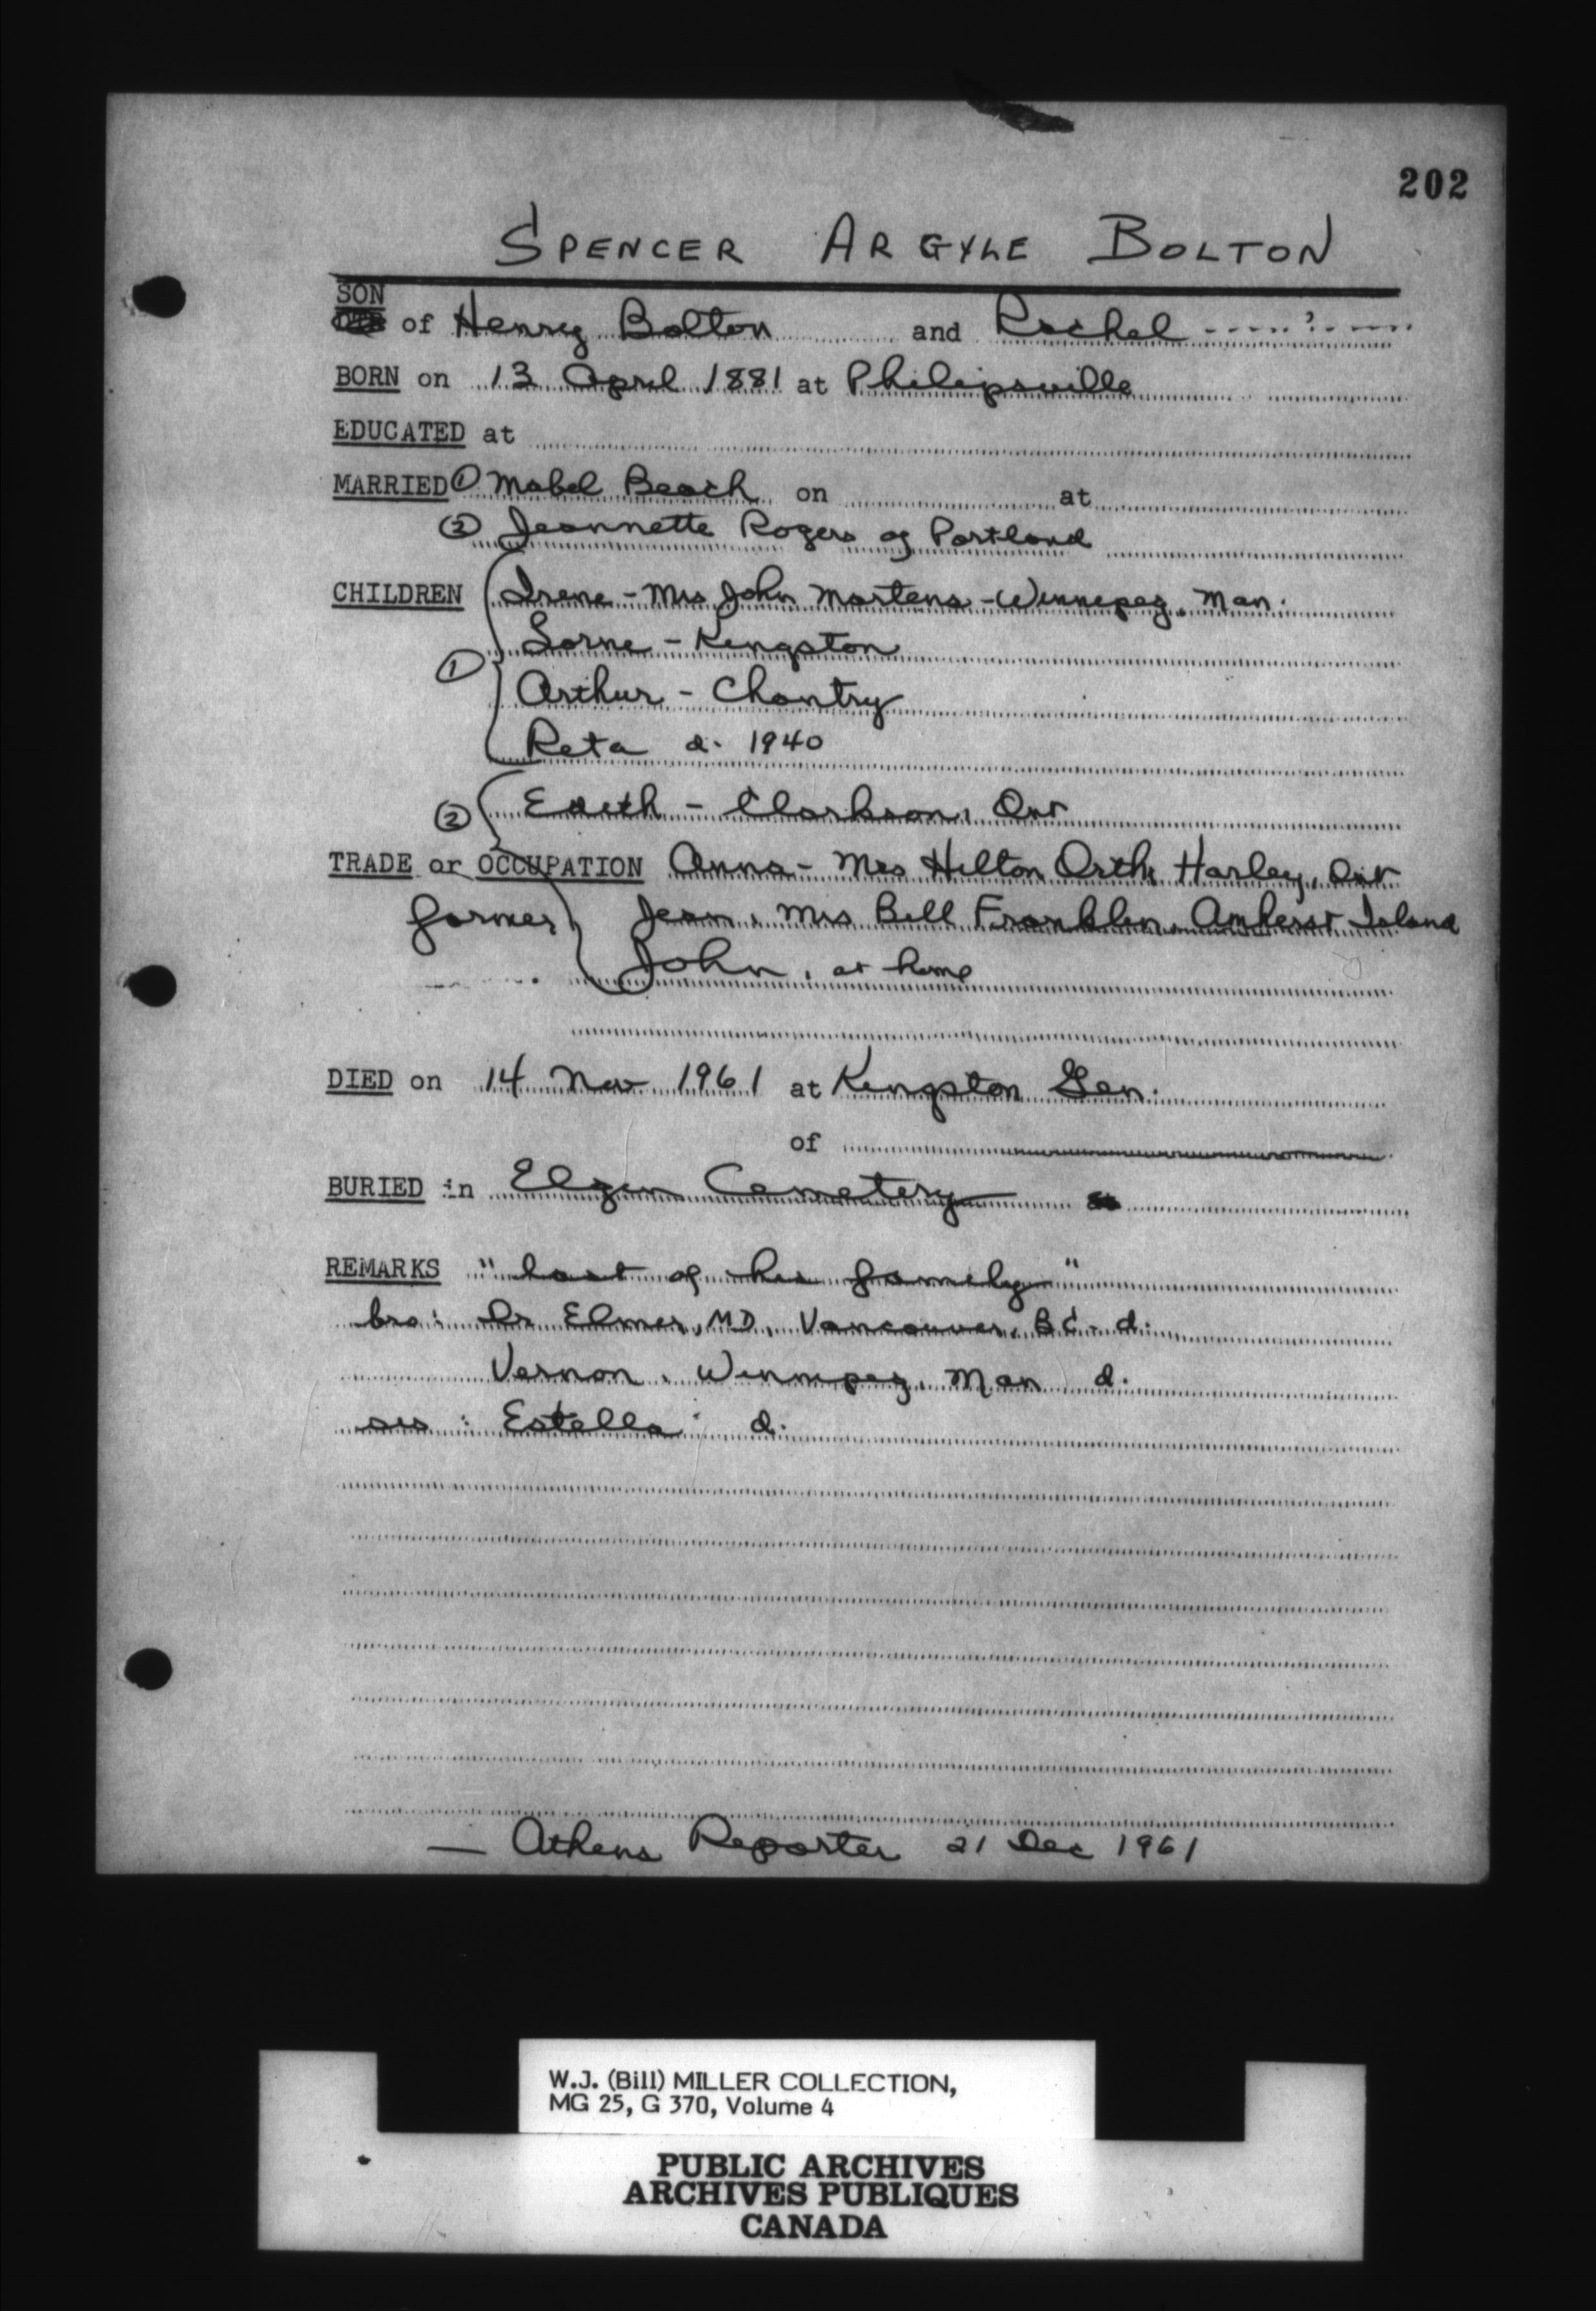 202
SPENCER ARGYLE BOLTON
SON
of Henry Bolton and Rachel ----?----
BORN on 13 April 1881 at Philipsville
EDUCATED at
MARRIED ① Mabel Beach on at
② Jeannette Rogers of Portland
CHILDREN Irene - Mrs John Martens - Winnipeg, Man.
Lorne - Kingston
①
Arthur - Chantry
Reta d. 1940
② Edith - Clarkson, Ont
TRADE or OCCUPATION Anna - Mrs Hilton Orth, Harley, Ont
farmer Jean, Mrs Bill Franklin, Amherst Island
John, at home
DIED on 14 Nov 1961 at Kingston Gen.
of
BURIED in Elgin Cemetery
REMARKS "last of his family"
bro: Dr Elmer, MD, Vancouver, BC - d.
Vernon, Winnipeg, Man d.
sis: Estella d.
— Athens Reporter 21 Dec 1961
W.J. (Bill) MILLER COLLECTION,
MG 25, G 370, Volume 4
PUBLIC ARCHIVES
ARCHIVES PUBLIQUES
CANADA